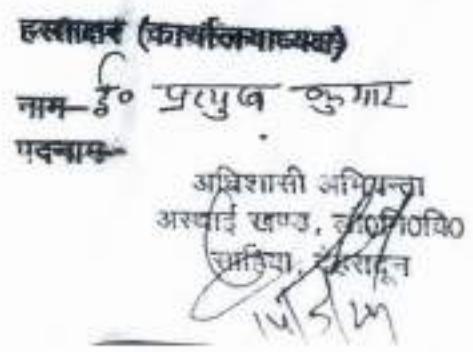 हस्ताक्षर (कार्यालयाध्यक्ष)
नाम– ई० प्रत्युष कुमार
पदनाम–
अधिशासी अभियन्ता
अस्थाई खण्ड, लो०नि०वि०
साहिया, देहरादून